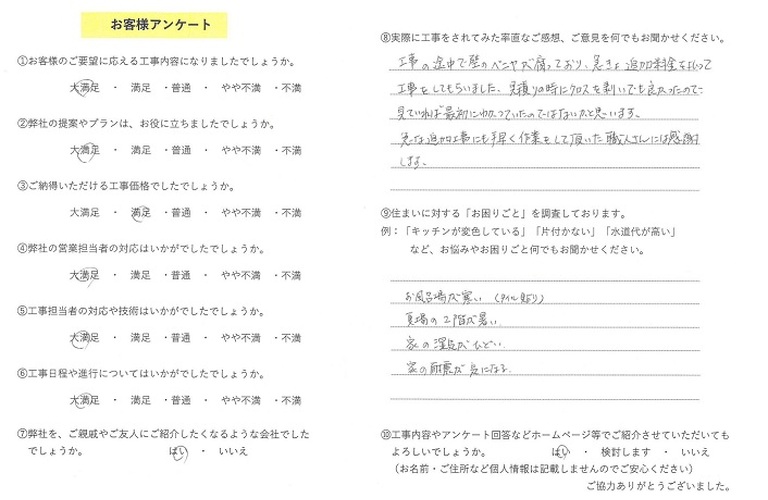 お客様アンケート
①お客様のご要望に応える工事内容になりましたでしょうか。
大満足 ・ 満足 ・普通 ・ やや不満 ・不満
②弊社の提案やプランは、お役に立ちましたでしょうか。
大満足 ・ 満足 ・普通 ・ やや不満 ・不満
③ご納得いただける工事価格でしたでしょうか。
大満足 ・ 満足 ・普通 ・ やや不満 ・不満
④弊社の営業担当者の対応はいかがでしたでしょうか。
大満足 ・ 満足 ・普通 ・ やや不満 ・不満
⑤工事担当者の対応や技術はいかがでしたでしょうか。
大満足 ・ 満足 ・普通 ・ やや不満 ・不満
⑥工事日程や進行についてはいかがでしたでしょうか。
大満足 ・ 満足 ・普通 ・ やや不満 ・不満
⑦弊社を、ご親戚やご友人にご紹介したくなるような会社でした
でしょうか。 はい ・ いいえ
⑧実際に工事をされてみた率直なご感想、ご意見を何でもお聞かせください。
工事の途中で壁のベニヤが腐っており、急きょ追加料金を払って
工事をしてもらいました、見積りの時にクロスを剥いでも良かったので
見ていれば最初にわかっていたのではないかと思います。
急な追加工事にも手早く作業をして頂いた職人さんには感謝
します。
⑨住まいに対する「お困りごと」を調査しております。
例：「キッチンが変色している」「片付かない」「水道代が高い」
など、お悩みやお困りごと何でもお聞かせください。
お風呂場が寒い (タイル貼り)
夏場の2階が暑い
家の湿気がひどい
家の耐震が気になる
⑩工事内容やアンケート回答などホームページ等でご紹介させていただいても
よろしいでしょうか。 はい ・ 検討します ・ いいえ
(お名前・ご住所など個人情報は記載しませんのでご安心ください)
ご協力ありがとうございました。